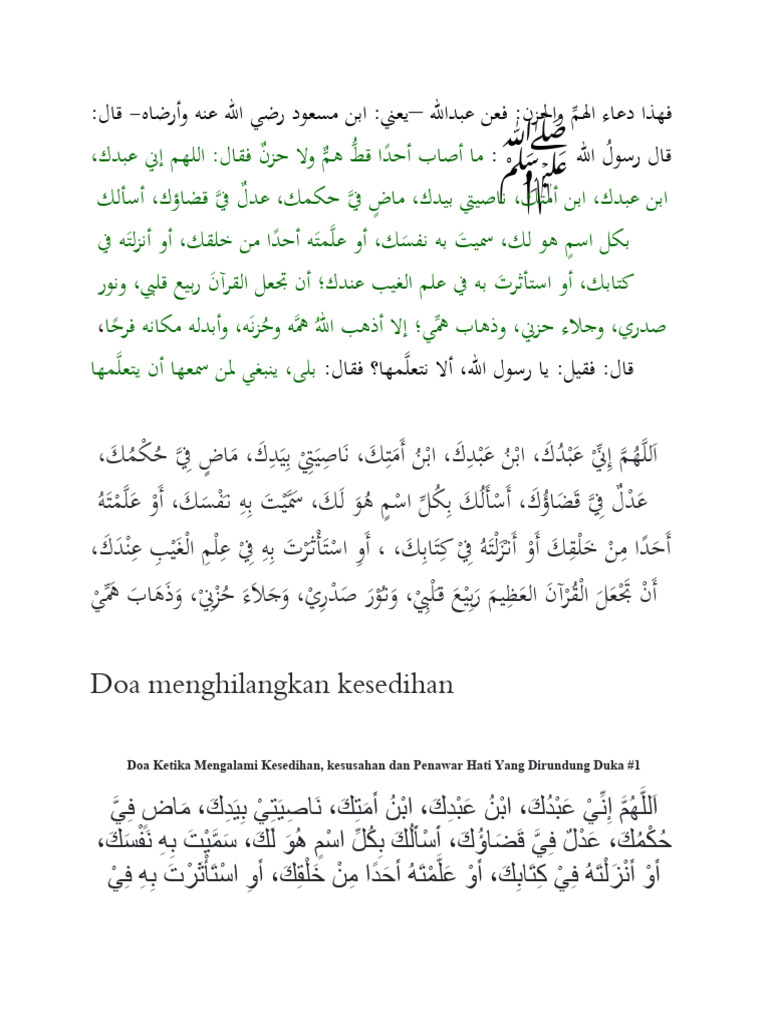 فهذا دعاء الهمِّ والحزن: فعن عبدالله –يعني: ابن مسعود رضي الله عنه وأرضاه– قال:
قال رسولُ الله صلى الله عليه وسلم : ما أصاب أحدًا قطُّ همٌّ ولا حزنٌ فقال: اللهم إني عبدك،
ابن عبدك، ابن أمتك، ناصيتي بيدك، ماضٍ فيَّ حكمك، عدلٌ فيَّ قضاؤك، أسألك
بكل اسمٍ هو لك، سميتَ به نفسَك، أو علَّمتَه أحدًا من خلقك، أو أنزلتَه في
كتابك، أو استأثرتَ به في علم الغيب عندك؛ أن تجعل القرآنَ ربيع قلبي، ونور
صدري، وجلاء حزني، وذهاب همِّي؛ إلا أذهب اللهُ همَّه وحُزنَه، وأبدله مكانه فرحًا،
قال: فقيل: يا رسول الله، ألا نتعلَّمها؟ فقال: بلى، ينبغي لمن سمعها أن يتعلَّمها
اَللَّهُمَّ إِنِّيْ عَبْدُكَ، ابْنُ عَبْدِكَ، ابْنُ أَمَتِكَ، نَاصِيَتِيْ بِيَدِكَ، مَاضٍ فِيَّ حُكْمُكَ،
عَدْلٌ فِيَّ قَضَاؤُكَ، أَسْأَلُكَ بِكُلِّ اسْمٍ هُوَ لَكَ، سَمَّيْتَ بِهِ نَفْسَكَ، أَوْ عَلَّمْتَهُ
أَحَدًا مِنْ خَلْقِكَ أَوْ أَنْزَلْتَهُ فِيْ كِتَابِكَ، ، أَوِ اسْتَأْثَرْتَ بِهِ فِيْ عِلْمِ الْغَيْبِ عِنْدَكَ،
أَنْ تَجْعَلَ الْقُرْآنَ العَظِيمَ رَبِيْعَ قَلْبِيْ، وَنُوْرَ صَدْرِيْ، وَجَلاَءَ حُزْنِيْ، وَذَهَابَ هَمِّيْ
Doa menghilangkan kesedihan
Doa Ketika Mengalami Kesedihan, kesusahan dan Penawar Hati Yang Dirundung Duka #1
اَللَّهُمَّ إِنِّيْ عَبْدُكَ، ابْنُ عَبْدِكَ، ابْنُ أَمَتِكَ، نَاصِيَتِيْ بِيَدِكَ، مَاضٍ فِيَّ
حُكْمُكَ، عَدْلٌ فِيَّ قَضَاؤُكَ، أَسْأَلُكَ بِكُلِّ اسْمٍ هُوَ لَكَ، سَمَّيْتَ بِهِ نَفْسَكَ،
أَوْ أَنْزَلْتَهُ فِيْ كِتَابِكَ، أَوْ عَلَّمْتَهُ أَحَدًا مِنْ خَلْقِكَ، أَوِ اسْتَأْثَرْتَ بِهِ فِيْ